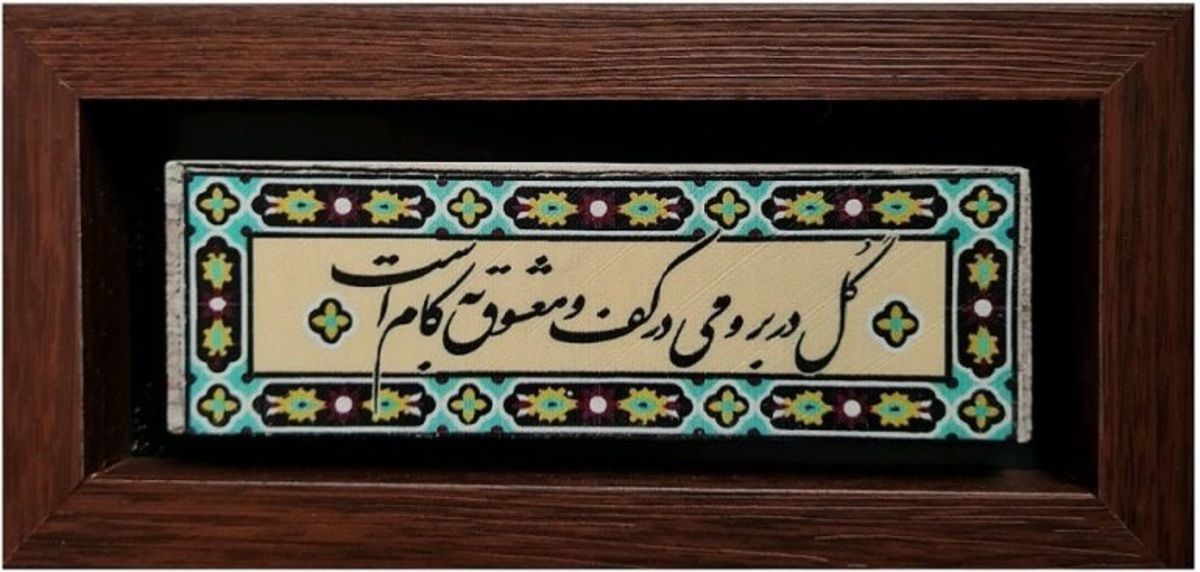 گل در بر و می در کف و معشوق به کام است